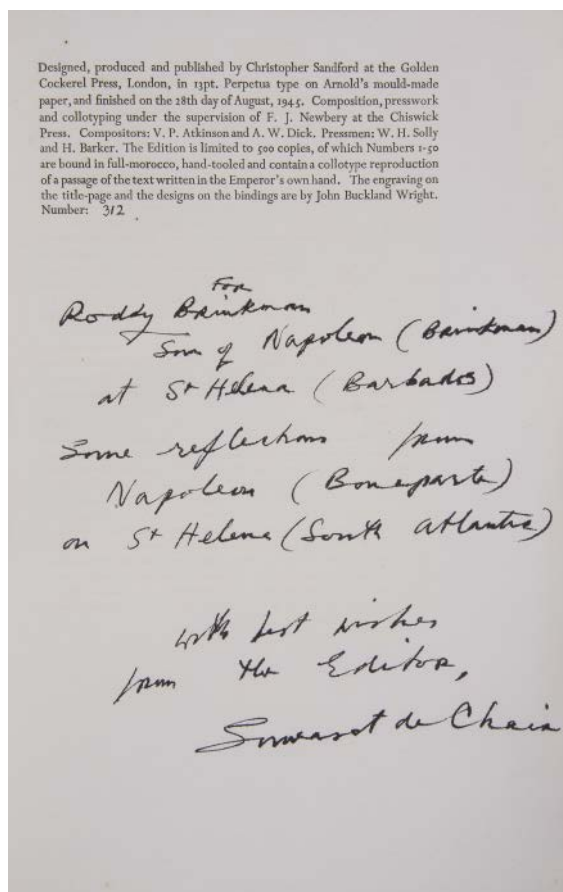 Designed, produced and published by Christopher Sandford at the Golden
Cockerel Press, London, in 13pt. Perpetua type on Arnold's mould-made
paper, and finished on the 28th day of August, 1945. Composition, presswork
and collotyping under the supervision of F. J. Newbery at the Chiswick
Press. Compositors: V. P. Atkinson and A. W. Dick. Pressmen: W. H. Solly
and H. Barker. The Edition is limited to 500 copies, of which Numbers 1-50
are bound in full-morocco, hand-tooled and contain a collotype reproduction
of a passage of the text written in the Emperor's own hand. The engraving on
the title-page and the designs on the bindings are by John Buckland Wright.
Number: 312
For
Roddy Brinkman
Son of Napoleon (Brinkman)
at St Helena (Barbados)
Some reflections from
Napoleon (Bonaparte)
on St Helena (South Atlantic)
with best wishes
from the Editor,
Somerset de Chair